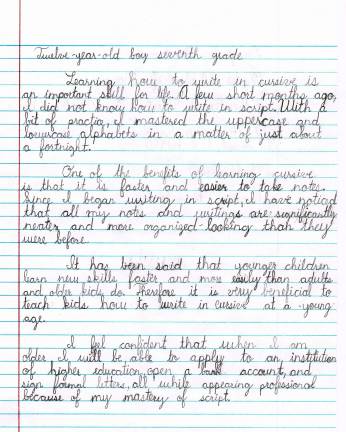 Twelve-year-old boy seventh grade
Learning how to write in cursive is
an important skill for life. A few short months ago,
I did not know how to write in script. With a
bit of practice, I mastered the uppercase and
lowercase alphabets in a matter of just about
a fortnight.
One of the benefits of learning cursive
is that it is faster and easier to take notes.
Since I began writing in script, I have noticed
that all my notes and writings are significantly
neater and more organized-looking than they
were before.
It has been said that younger children
learn new skills faster and more easily than adults
and older kids do. Therefore it is very beneficial to
teach kids how to write in cursive at a young
age.
I feel confident that when I am
older I will be able to apply to an institution
of higher education, open a bank account, and
sign formal letters, all while appearing professional
because of my mastery of script.